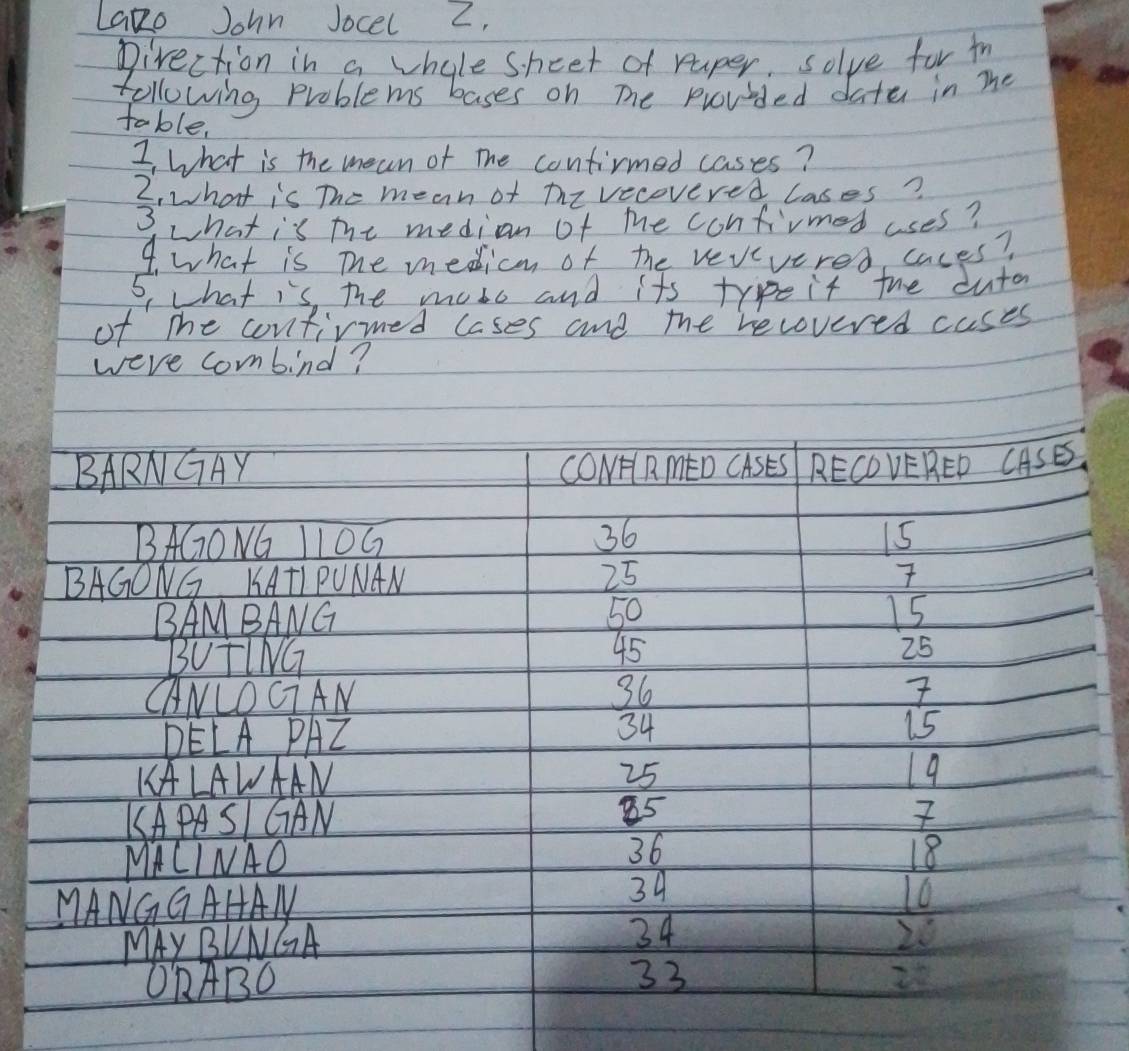 Lazo John Jocel Z.
Direction in a whole sheet of Paper. solve for th
following Problems bases on The Provided data in The
table.
1. What is the mean of The confirmed cases?
2. What is The mean of The recovered cases?
3. what is The median of The confirmed cases?
4. What is The median of The recovered cases?
5. what is The mode and its type if the data
of The confirmed cases and The recovered cases
were combind?
BARNGAY CONFIRMED CASES RECOVERED CASES
BAGONG ILOG 36 15
BAGONG KATIPUNAN 25 7
BAMBANG 50 15
BUTING 45 25
CANLOGAN 36 7
DELA PAZ 34 15
KALAWAAN 25 19
KAPASIGAN 7
MALINAO 36 18
MANGGAHAN 34 10
MAYBUNGA 34 20
ORABO 33